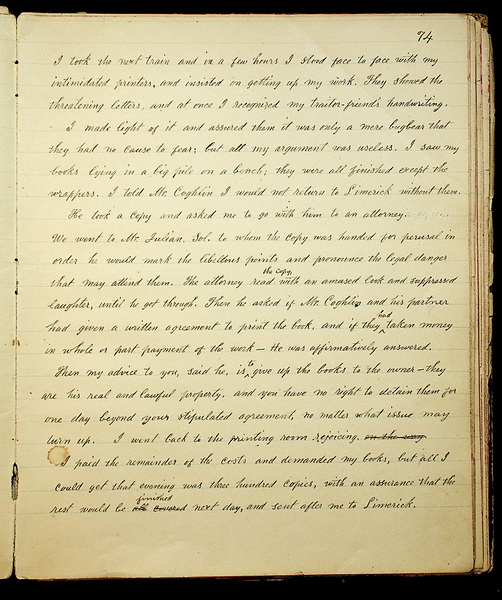 74
I took the next train and in a few hours I stood face to face with my
intimidated printers, and insisted on getting up my work. They showed the
threatening letters, and at once I recognized my traitor-friend's handwriting.
I made light of it and assured them it was only a mere bugbear that
they had no cause to fear; but all my argument was useless. I saw my
books lying in a big pile on a bench; they were all finished except the
wrappers. I told Mr. Coghlin I would not return to Limerick without them.
He took a copy and asked me to go with him to an attorney.
We went to Mr. Julian, Sol. to whom the copy was handed for perusal in
order he would mark the libellous points and pronounce the legal danger
that may attend them. The attorney read the copy, with an amused look and suppressed
laughter, until he got through. Then he asked if Mr. Coghlin and his partner
had given a written agreement to print the book, and if they had taken money
in whole or part payment of the work — He was affirmatively answered.
Then my advice to you, said he, is to give up the books to the owner — they
are his real and lawful property, and you have no right to detain them for
one day beyond your stipulated agreement, no matter what issue may
turn up. I went back to the printing room rejoicing. on the way
I paid the remainder of the costs and demanded my books, but all I
could get that evening was three hundred copies, with an assurance that the
rest would be all covered finished next day, and sent after me to Limerick.